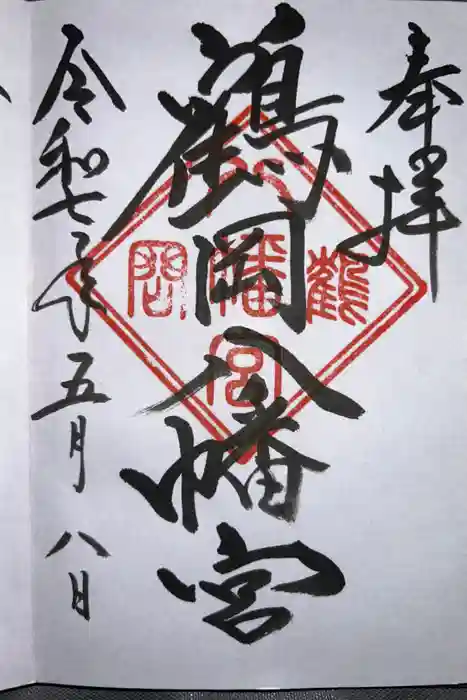 奉拝
鶴岡八幡宮
鶴
岡
八
幡
宮
令和七年五月八日